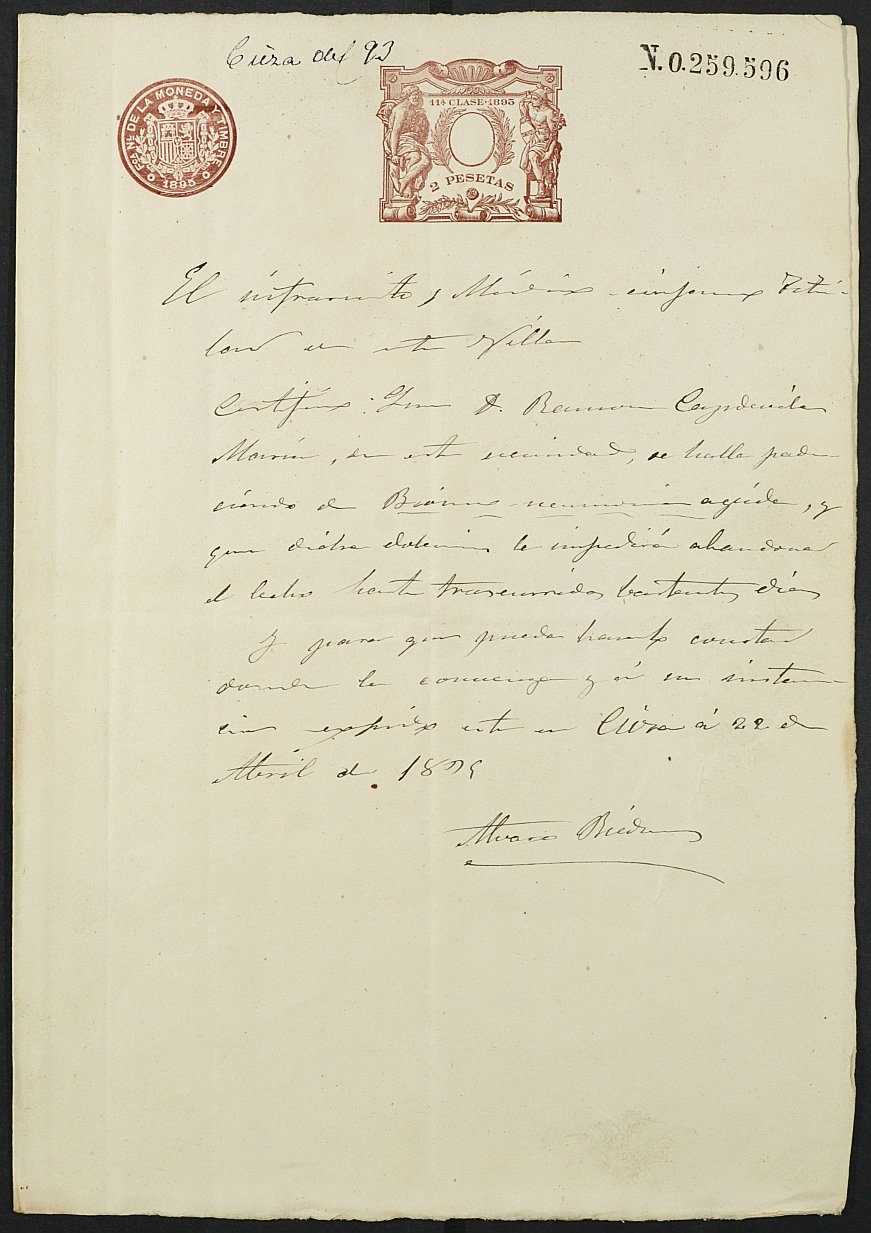 Cieza del 93
N.0.259.596
FCA. NL. DE LA MONEDA Y TIMBRE
1895
11ª CLASE·1895
2 PESETAS
El infrascrito, Médico cirujano Titu-
lar en esta Villa
Certifico: Que D. Ramon Capdevila
Marin, de esta vecindad, se halla pade-
ciendo de Bronco neumonia aguda, y
que dicha dolencia le impedirá abandonar
el lecho hasta trascurridos bastantes dias
Y para que pueda hacerlo constar
donde le convenga y á su instan-
cia expido esta en Cieza á 22 de
Abril de 1895
Alvaro